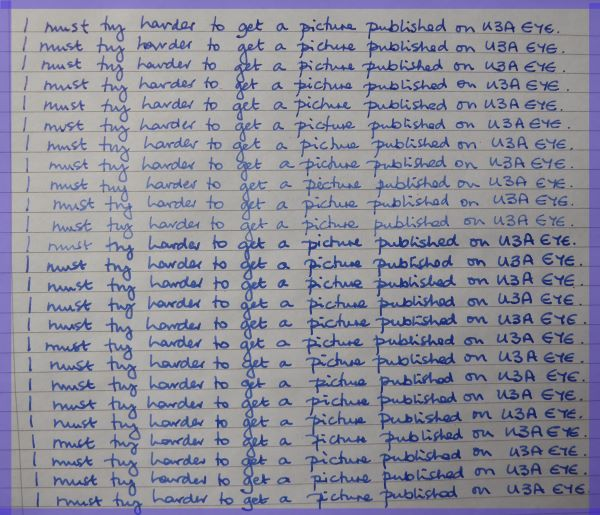 I must try harder to get a picture published on U3A EYE.
I must try harder to get a picture published on U3A EYE.
I must try harder to get a picture published on U3A EYE.
I must try harder to get a picture published on U3A EYE.
I must try harder to get a picture published on U3A EYE.
I must try harder to get a picture published on U3A EYE.
I must try harder to get a picture published on U3A EYE.
I must try harder to get a picture published on U3A EYE.
I must try harder to get a picture published on U3A EYE.
I must try harder to get a picture published on U3A EYE.
I must try harder to get a picture published on U3A EYE.
I must try harder to get a picture published on U3A EYE.
I must try harder to get a picture published on U3A EYE.
I must try harder to get a picture published on U3A EYE.
I must try harder to get a picture published on U3A EYE.
I must try harder to get a picture published on U3A EYE.
I must try harder to get a picture published on U3A EYE.
I must try harder to get a picture published on U3A EYE.
I must try harder to get a picture published on U3A EYE.
I must try harder to get a picture published on U3A EYE.
I must try harder to get a picture published on U3A EYE.
I must try harder to get a picture published on U3A EYE.
I must try harder to get a picture published on U3A EYE.
I must try harder to get a picture published on U3A EYE.
I must try harder to get a picture published on U3A EYE.